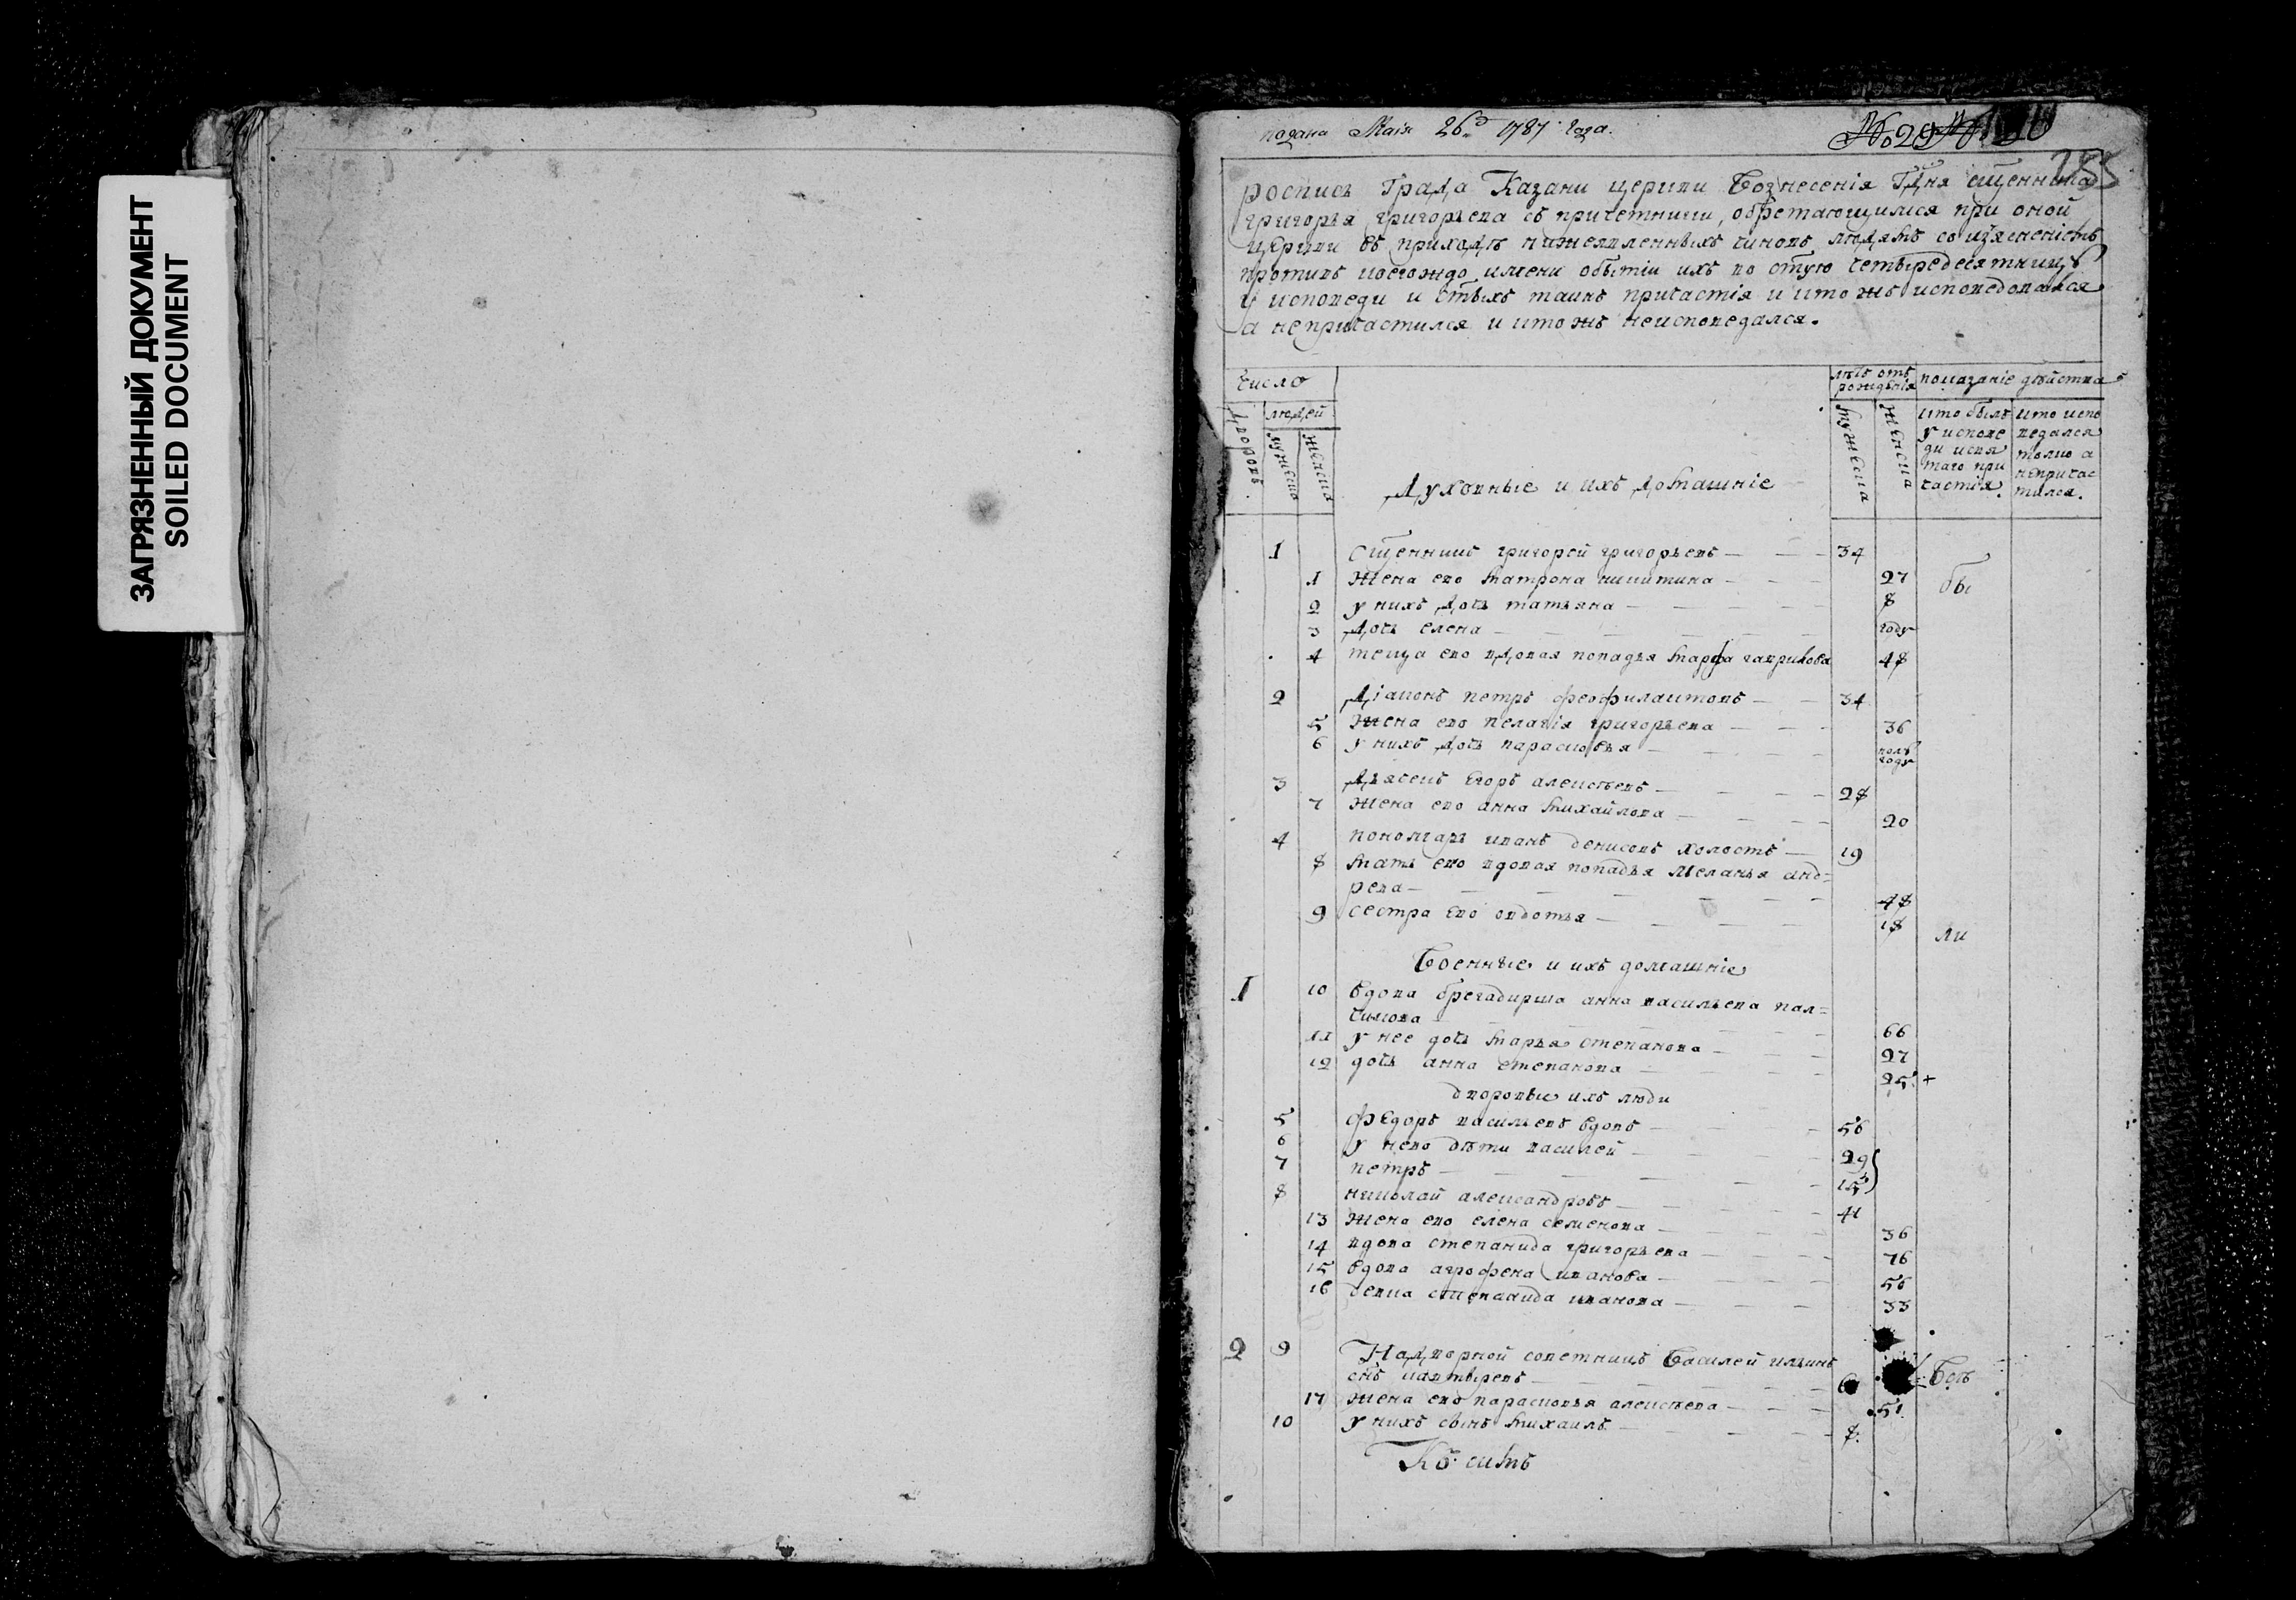 ЗАГРЯЗНЕННЫЙ ДОКУМЕНТ
SOILED DOCUMENT
подана Маія 26.го 1787 года.
№ 29
роспись града Казани церкви Вознесенія Гдня сщенника
григорья григорьева съ причетники, обретающимися при оной
церкви въ приходѣ нижеявленныхъ чиновъ людямъ со изъясненіемъ
противъ коегождо имени о бытіи ихъ во стую четыредесятницу
у исповеди и стыхъ таинъ причастія и кто жъ исповедовался
а непричастился и кто жъ неисповедался.
Число
лѣтъ отъ рожденія
показаніе дѣйства
Дворовъ
людей
мужеска
женска
мужеска
женска
кто былъ у исповеди и свя таго причастія.
кто исповедался толко а непричастился.
Духовные и ихъ домашніе
1 Сщенникъ григорей григорьевъ 34
1 Жена ево матрона никитина 27 бы
2 у нихъ дочь татьяна 8
3 Дочь елена году
4 теща ево вдовая попадья марфа гаврилова 48
2 Діаконъ петръ феофилактовъ 34
5 Жена ево пелагія григорьева 36
6 у нихъ дочь парасковья полъ году
3 Дьячекъ Егоръ алексѣевъ 28
7 Жена ево анна михайлова 20
4 пономарь иванъ денисовъ холостъ 19
8 мать ево вдовая попадья меланья анд=
рева 48
9 Сестра ево овдотья 18 ли
Военные и ихъ домашніе
1 10 вдова брегадирша анна васильева пал=
чикова 66
11 у нее дочь марья степанова 27
12 дочь анна степанова 25. +
дворовые ихъ люди
5 федоръ васильевъ вдовъ 56
6 у него дѣти василей 29
7 петръ 15
8 николай александровъ 41
13 Жена ево елена семенова 36
14 вдова степанида григорьева 76
15 вдова агрофена иванова 56
16 девка степанида иванова 33
2 9 Надворной советникъ Василей ильинъ
снъ 
17 Жена ево парасковья алексѣева 51
10 у нихъ сынъ михаилъ 8.
Къ симъ